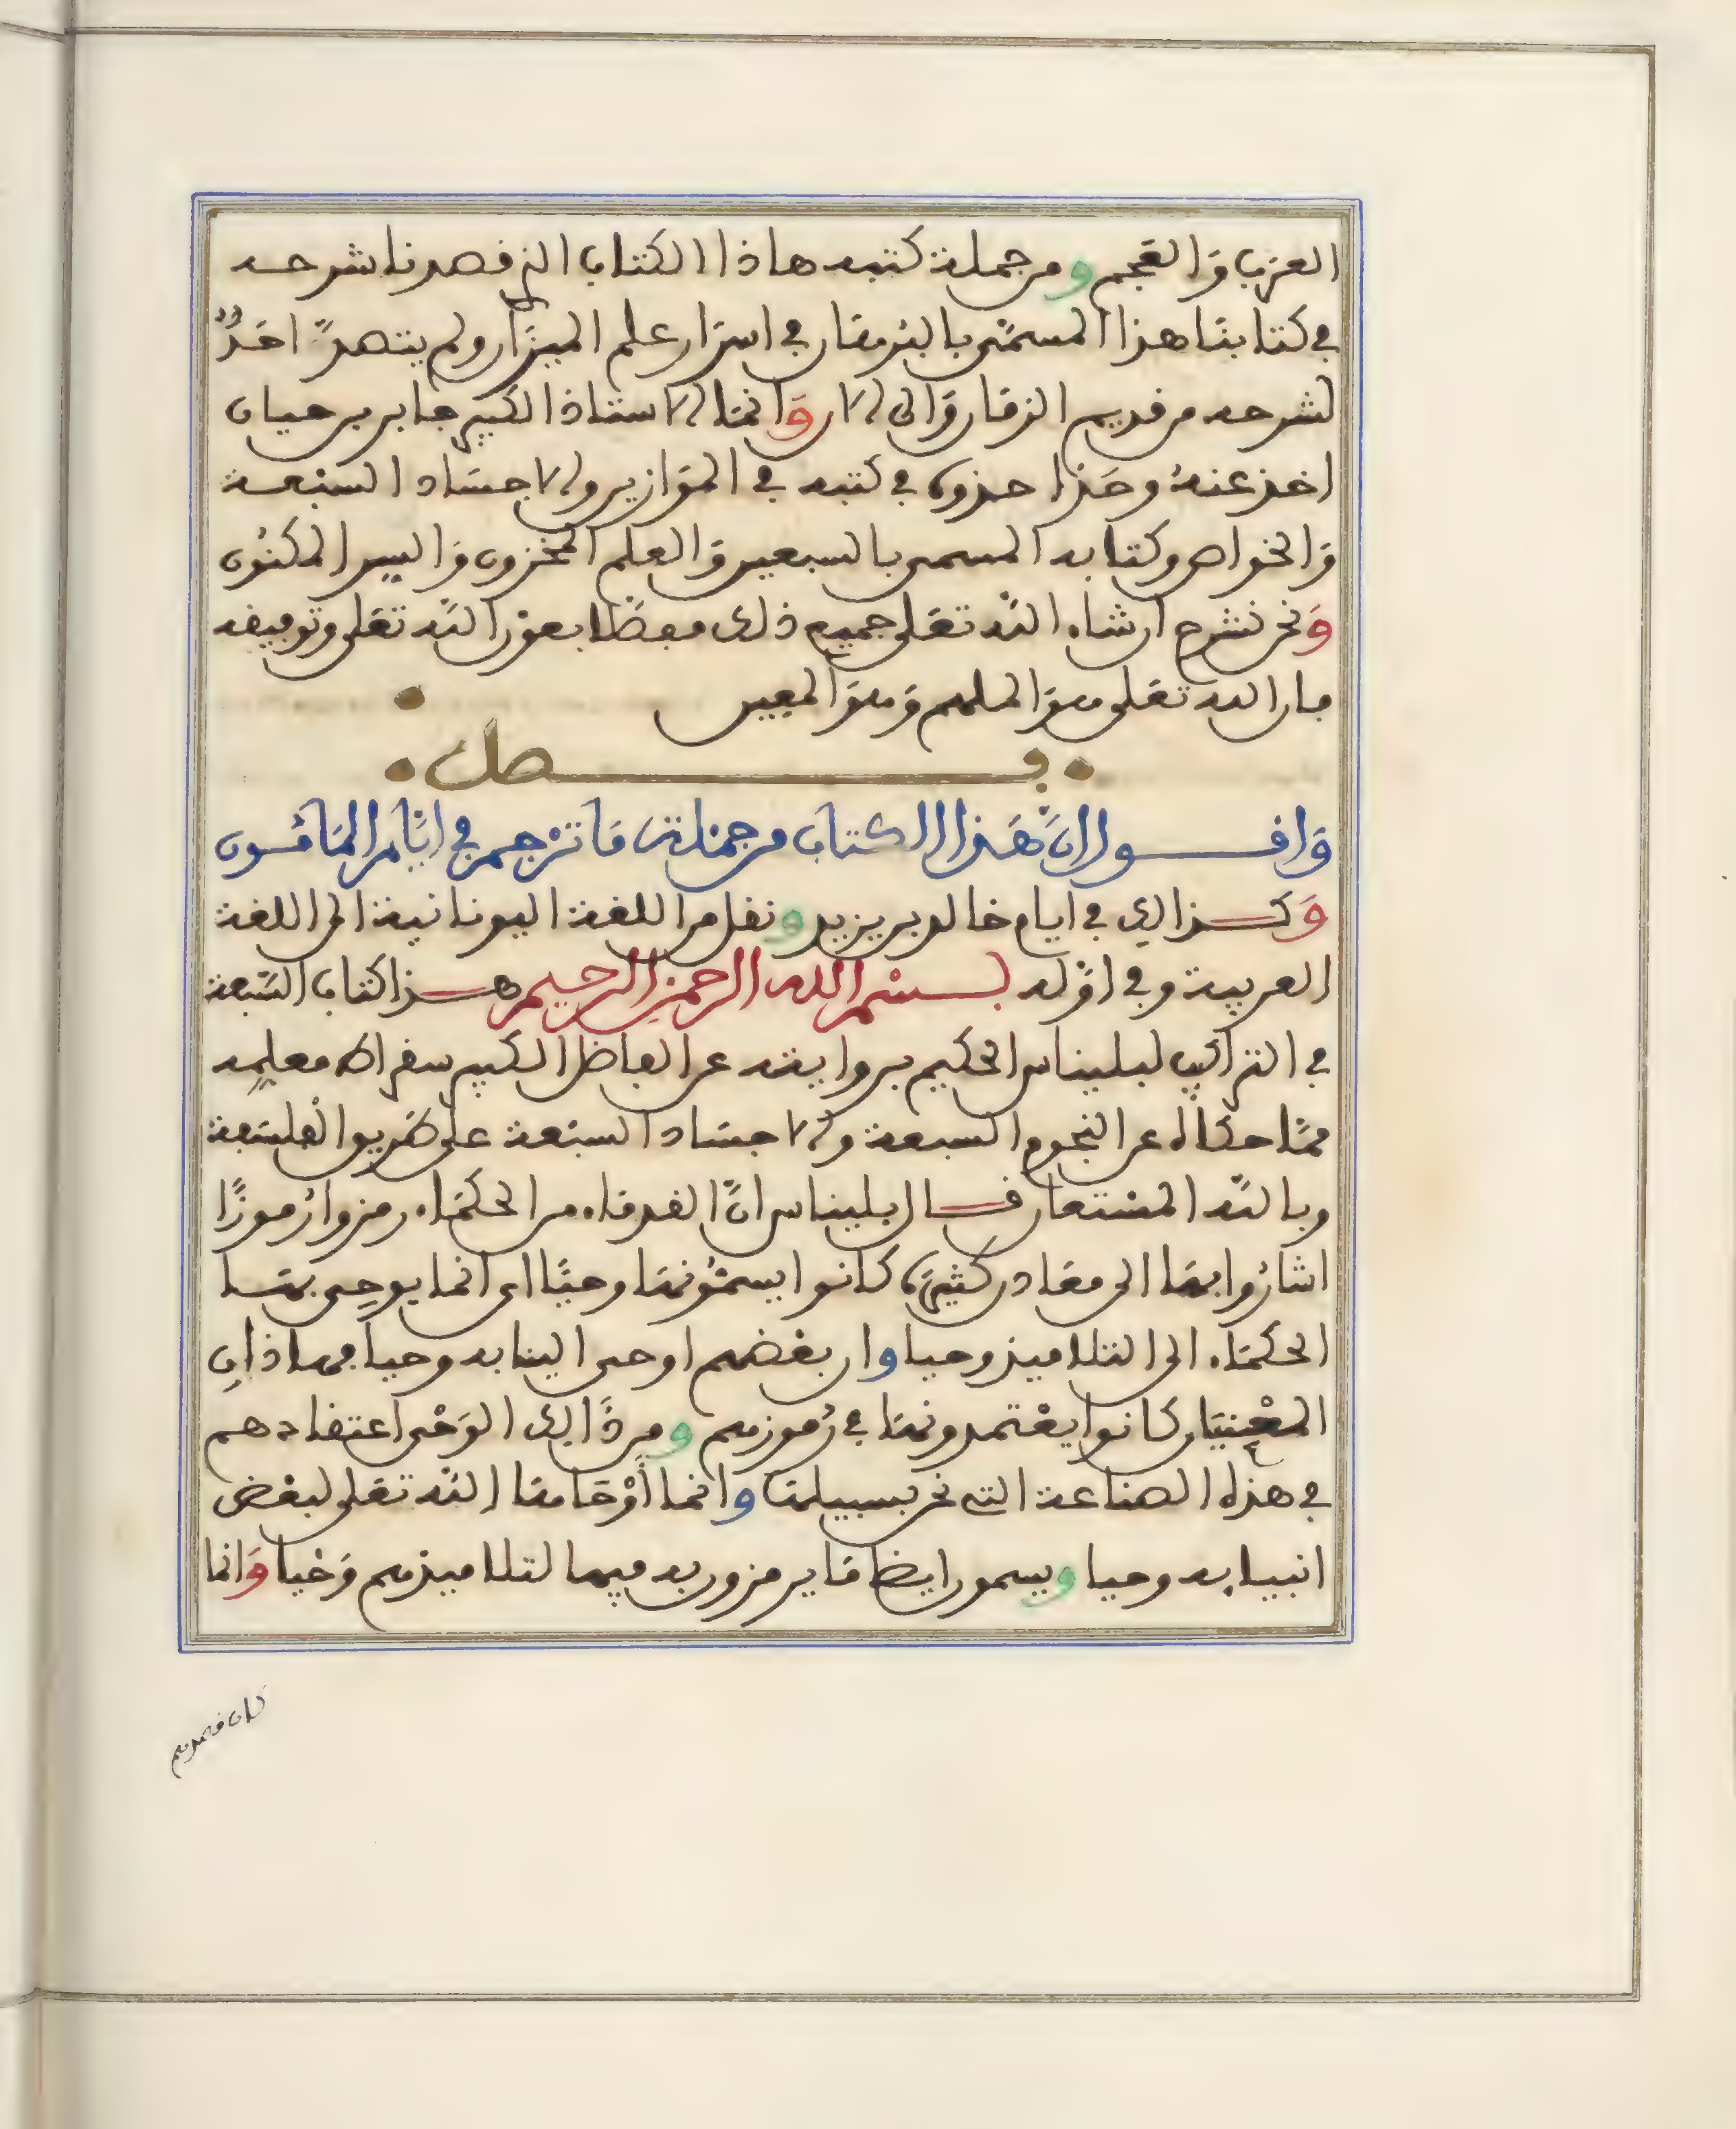 العرب والعجم ومن جملة كتبه هاذا الكتاب الذي قصدنا شرحه
في كتابنا هذا المسمى بالبرهان في اسرار علم الميزان ولم يتصد احد
لشرحه من قديم الزمان والى الان وانما الاستاذ الكبير جابر بن حيان
اخذ عنه وحذا حذوه في كتبه في الموازين والاجساد السبعة
والخواص وكتابه المسمى بالسبعين والعلم المخزون والسر المكنون
ونحن نشرح ان شاء الله تعلى جميع ذلك مفصلا بعون الله تعلى وتوفيقه
فان الله تعلى هو الملهم وهو المعين
فصل
واقول ان هذا الكتاب من جملة ما ترجم في ايام المامون
وكذالك في ايام خالد بن يزيد ونقل من اللغة اليونانية الى اللغة
العربية وفي اوله بسم الله الرحمن الرحيم هذا كتاب السبعة
في التراكيب لبليناس الحكيم بروايته عن الفاضل الكبير سقراط معلمه
مما حكاه عن النجوم السبعة والاجساد السبعة على طريق الفلسفة
وبالله المستعان قال بليناس ان القدماء من الحكماء رمزوا رموزا
اشاروا بها الى معادن كثيرة كانوا يسمونها وحيا اي انما يوحى بها
الحكماء الى التلاميذ وحيا وان بعضهم اوحى الينا به وحيا فهاذان
المعنيان كانوا يعتمدونها في رموزهم ومن ذالك الوحي اعتقادهم
في هذه الصناعة التي نحن بسبيلها وانما أوحاها الله تعلى لبعض
انبيايه وحيا ويسمون ايضا ما يرمزون به فيها لتلاميذهم وحيا وانما
كان قصدهم